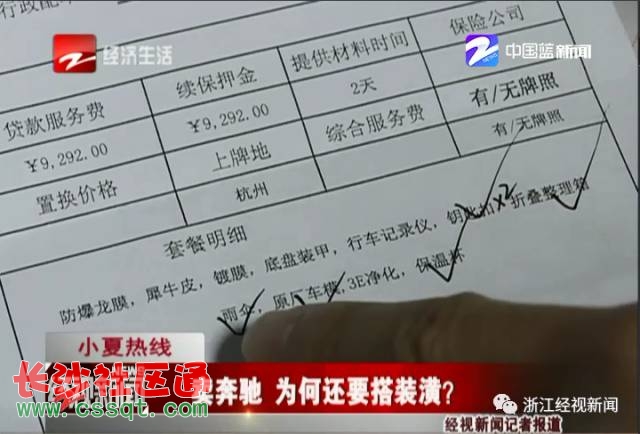 经济生活
中国蓝新闻
行政配
保险公司
提供材料时间
续保押金
贷款服务费
有/无牌照
2天
¥9,292.00
¥9,292.00
综合服务费
有/无牌照
上牌地
置换价格
杭州
套餐明细
防爆龙膜,犀牛皮,镀膜,底盘装甲,行车记录仪,钥匙扣x2 折叠整理箱
雨伞,原厂车模,3E净化,保温杯
小夏热线
买奔驰 为何还要搭装潢?
长沙社区通
www.cssqt.com
浙江经视新闻
经视新闻记者报道